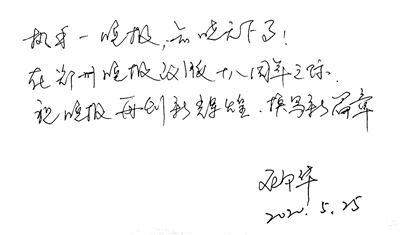 执手一晚报，知晓天下了！
在郑州晚报改版十八周年之际，
祝晚报再创新辉煌，撰写新篇章
2020.5.25